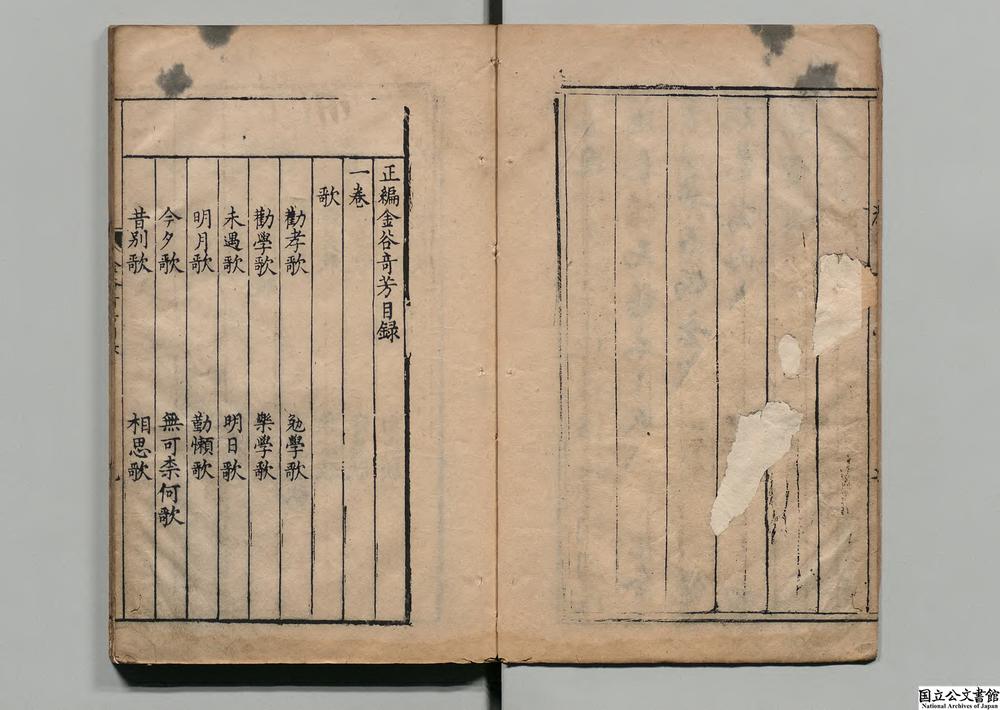 正編金谷竒芳目録
一卷
歌
勸孝歌 勉學歌
勸學歌 樂學歌
未遇歌 明日歌
明月歌 勤懶歌
今夕歌 無可柰何歌
昔別歌 相思歌
国立公文書館
National Archives of Japan